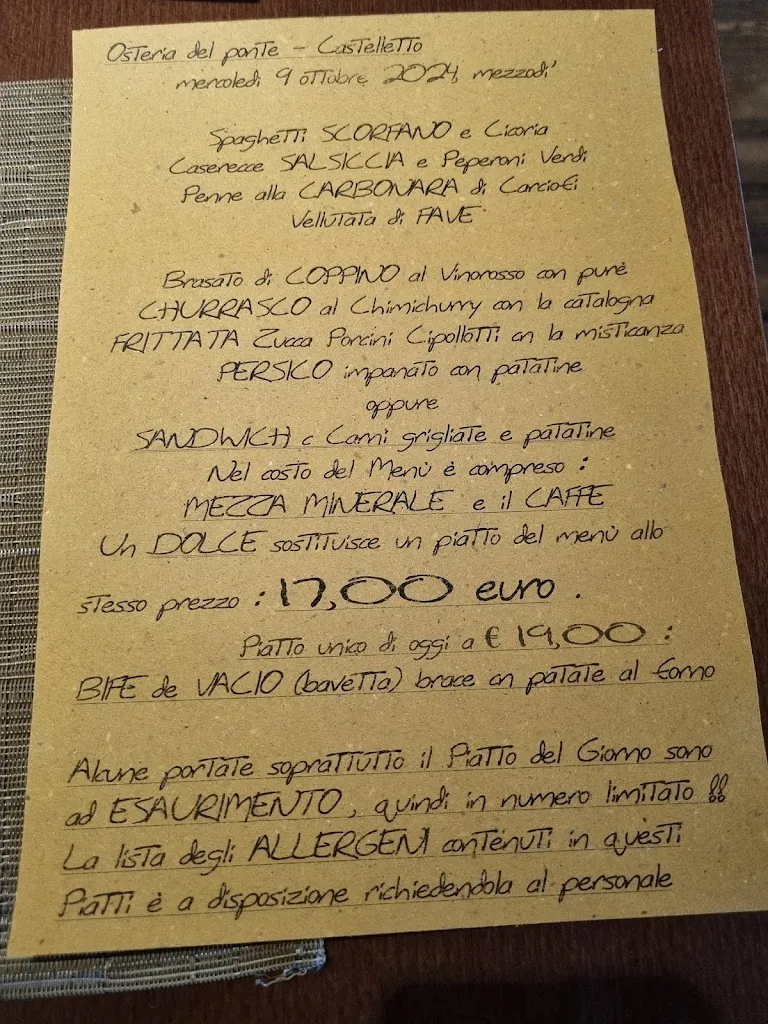 Osteria del ponte - Castelletto
mercoledì 9 ottobre 2024, mezzodi'
Spaghetti SCORFANO e Cicoria
Caserecce SALSICCIA e Peperoni Verdi
Penne alla CARBONARA di Carciofi
Vellutata di FAVE
Brasato di COPPINO al Vinorosso con purè
CHURRASCO al Chimichurry con la catalogna
FRITTATA Zucca Porcini Cipollotti cn la misticanza
PERSICO impanato con patatine
oppure
SANDWICH c Carni grigliate e patatine
Nel costo del Menù è compreso :
MEZZA MINERALE e il CAFFE
Un DOLCE sostituisce un piatto del menù allo
stesso prezzo : 17,00 euro .
Piatto unico di oggi a € 19,00 :
BIFE de VACIO (bavetta) brace cn patate al forno
Alcune portate soprattutto il Piatto del Giorno sono
ad ESAURIMENTO, quindi in numero limitato !!
La lista degli ALLERGENI contenuti in questi
Piatti è a disposizione richiedendola al personale